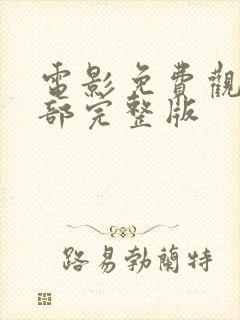 電影免費觀
部完整版
路易勃蘭特